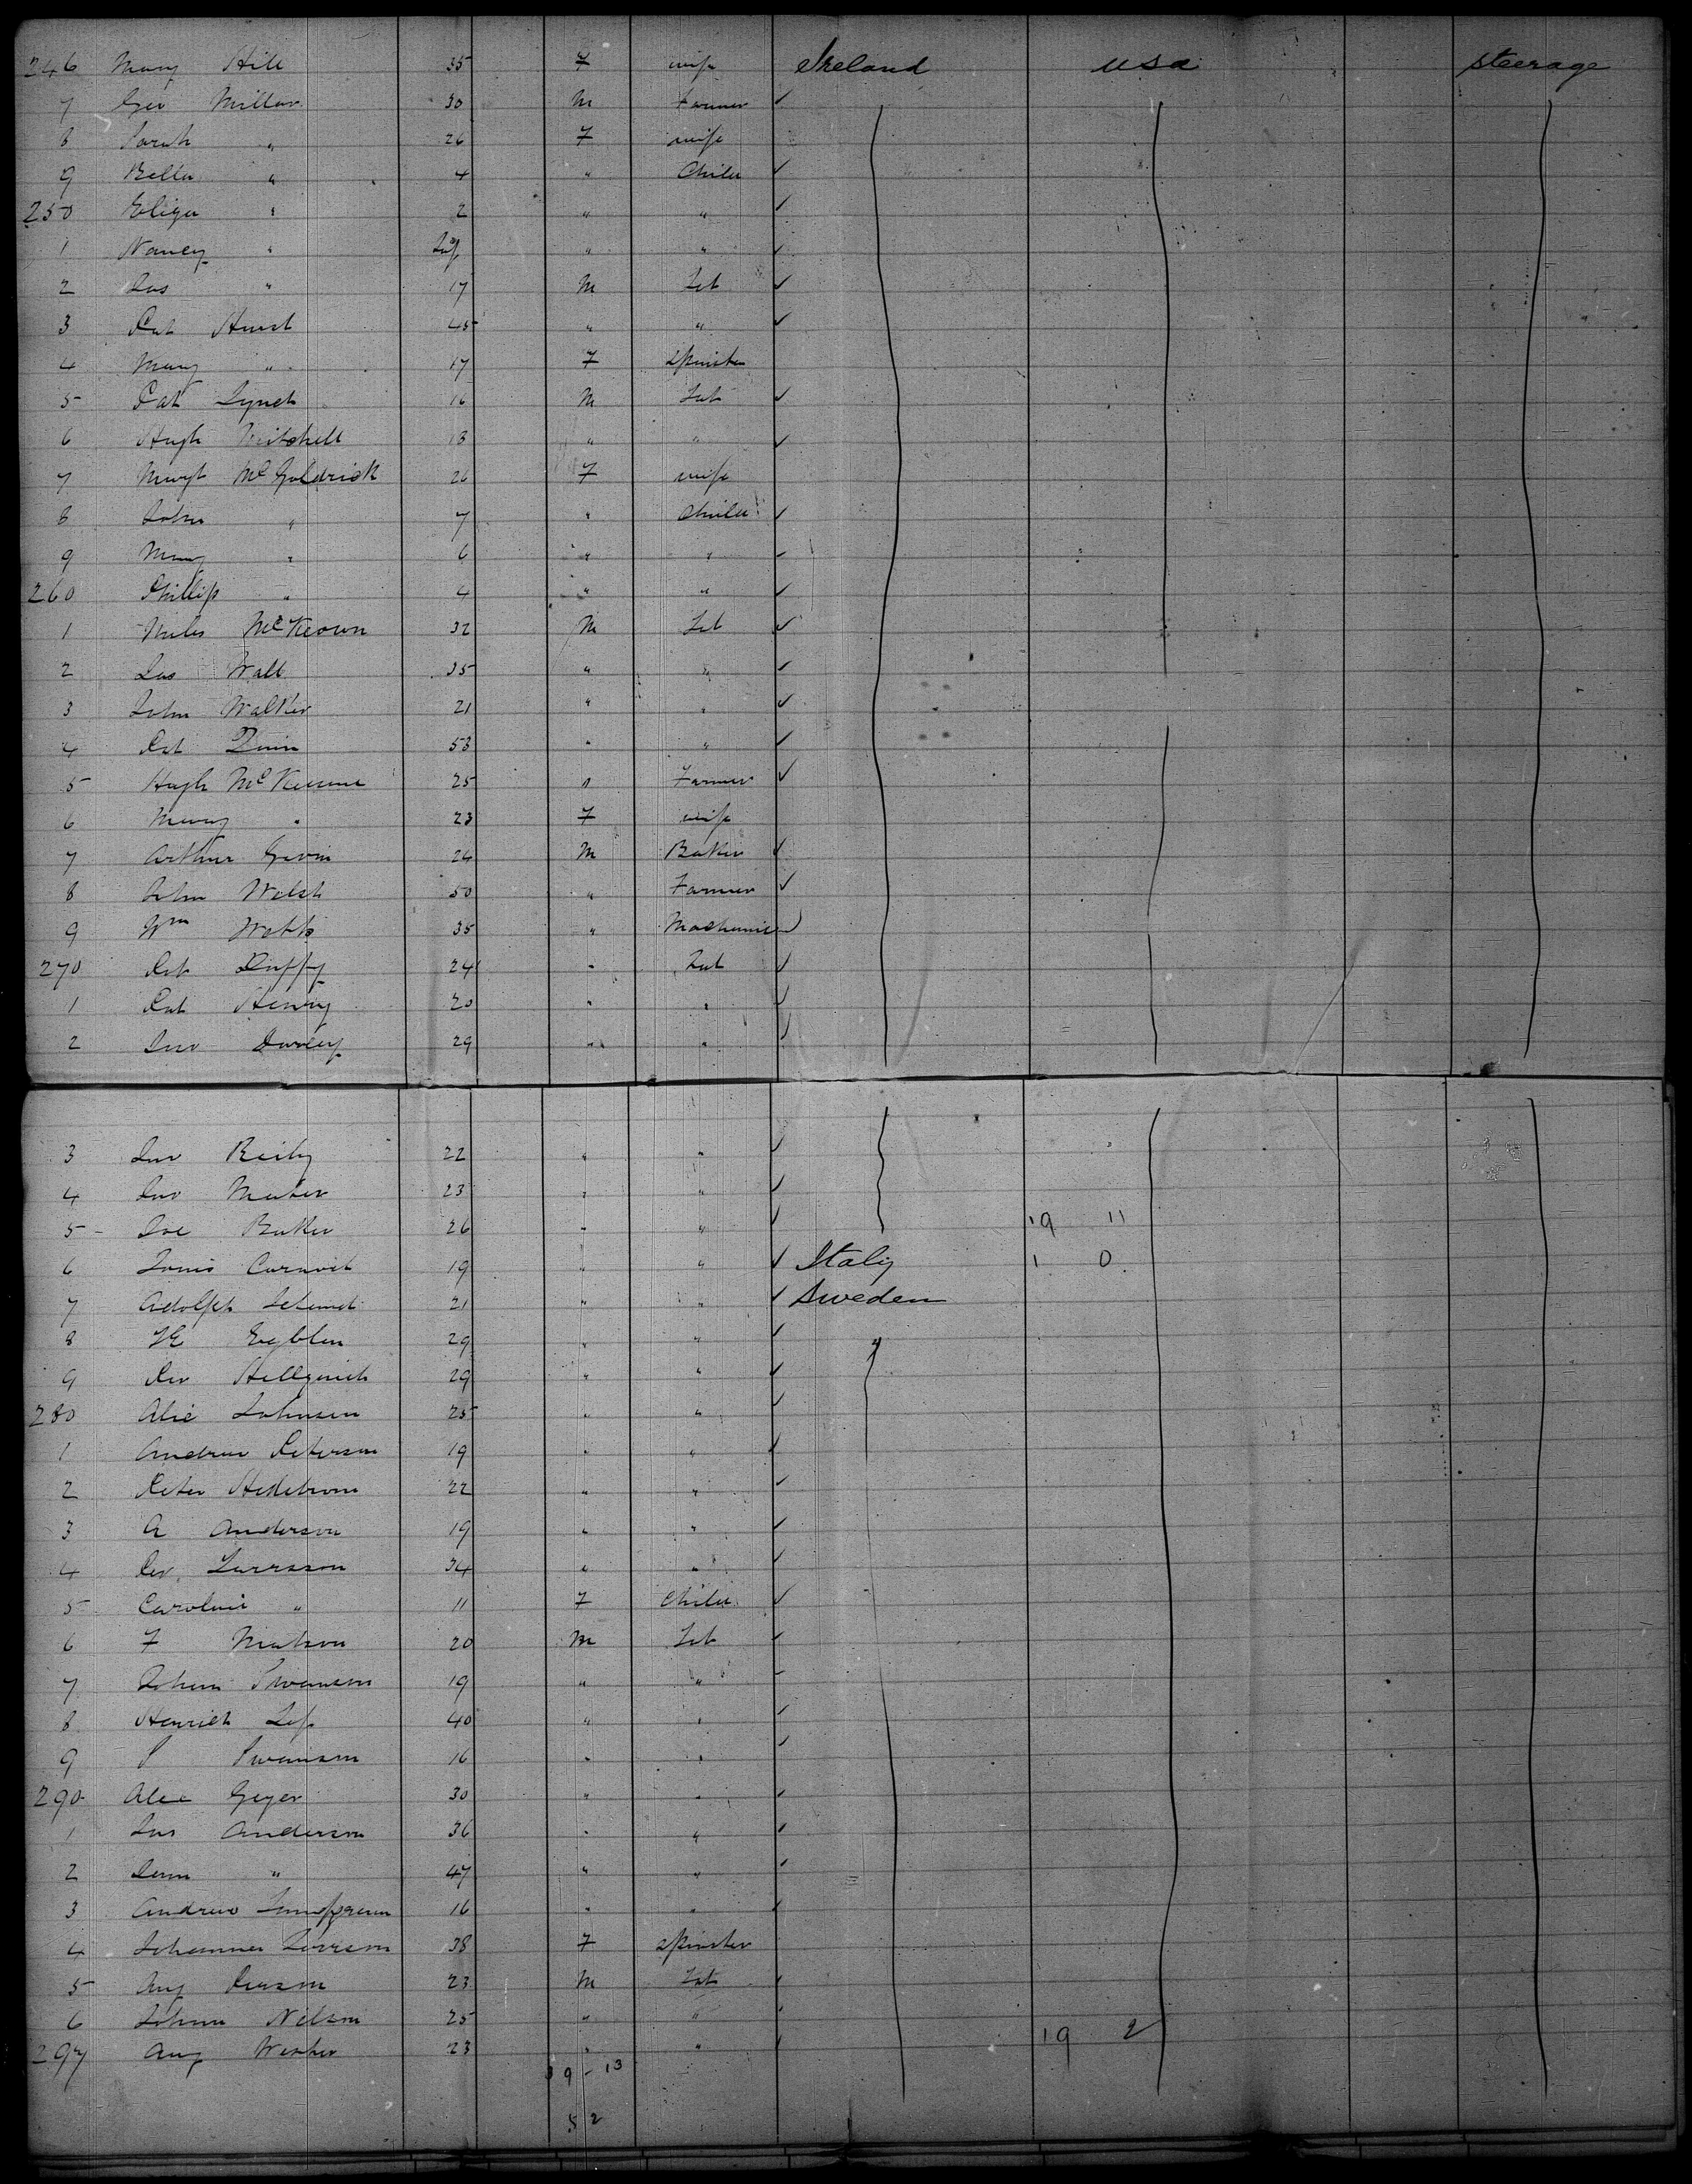 246 Mary Hill 35 F wife Ireland USA Steerage
7 Geo Millar 30 M Farmer ✓
8 Sarah " 26 F wife
9 Bella " 4 " Child ✓
250 Eliza " 2 " " ✓
1 Nancy " Inf " " ✓
2 Jas " 17 M Lab ✓
3 Pat Hurst 45 " " ✓
4 Mary " 17 F Spinster
5 Pat Lynch 16 M Lab ✓
6 Hugh Mitchell 18 " " ✓
7 Margt McGoldrick 26 F wife
8 John " 7 " Child ✓
9 Mary " 6 " " ✓
260 Phillip " 4 " " ✓
1 Miles McKeown 32 M Lab ✓
2 Jas Wall 35 " " ✓
3 John Walker 21 " " ✓
4 Pat Quin 53 " " ✓
5 Hugh 25 " Farmer ✓
6 Mary " 23 F wife
7 Arthur Gavin 24 M Baker ✓
8 John Welsh 50 " Farmer ✓
9 Wm Webb 35 " Mechanic ✓
270 Pat Duffy 24 " Lab ✓
1 Pat Henry 20 " " ✓
2 Jno Darcy 29 " " ✓
3 Jno Reily 22 " " ✓
4 Jno 23 " " ✓
5 Joe Baker 26 " " ✓ 19 11
6 Louis 19 " " ✓ Italy 1 0
7 Adolph 21 " " ✓ Sweden
8 29 " " ✓ "
9 Per 29 " " ✓
280 Johnson 25 " " ✓
1 Andrew Peterson 19 " " ✓
2 Peter 22 " " ✓
3 A Anderson 19 " " ✓
4 Per Larsson 34 " " ✓
5 Caroline " 11 F Child ✓
6 F Matson 20 M Lab ✓
7 Johan Swanson 19 " " ✓
8 Henrich 40 " " ✓
9 S Swanson 16 " " ✓
290 Alex Geyer 30 " " ✓
1 Jas Anderson 36 " " ✓
2 " 47 " " ✓
3 Andrew 16 " " ✓
4 Johanna 38 F Spinster
5 Aug Person 23 M Lab ✓
6 Johan Nelson 25 " " ✓
297 Aug 23 " " ✓ 19 2
39 - 13
52